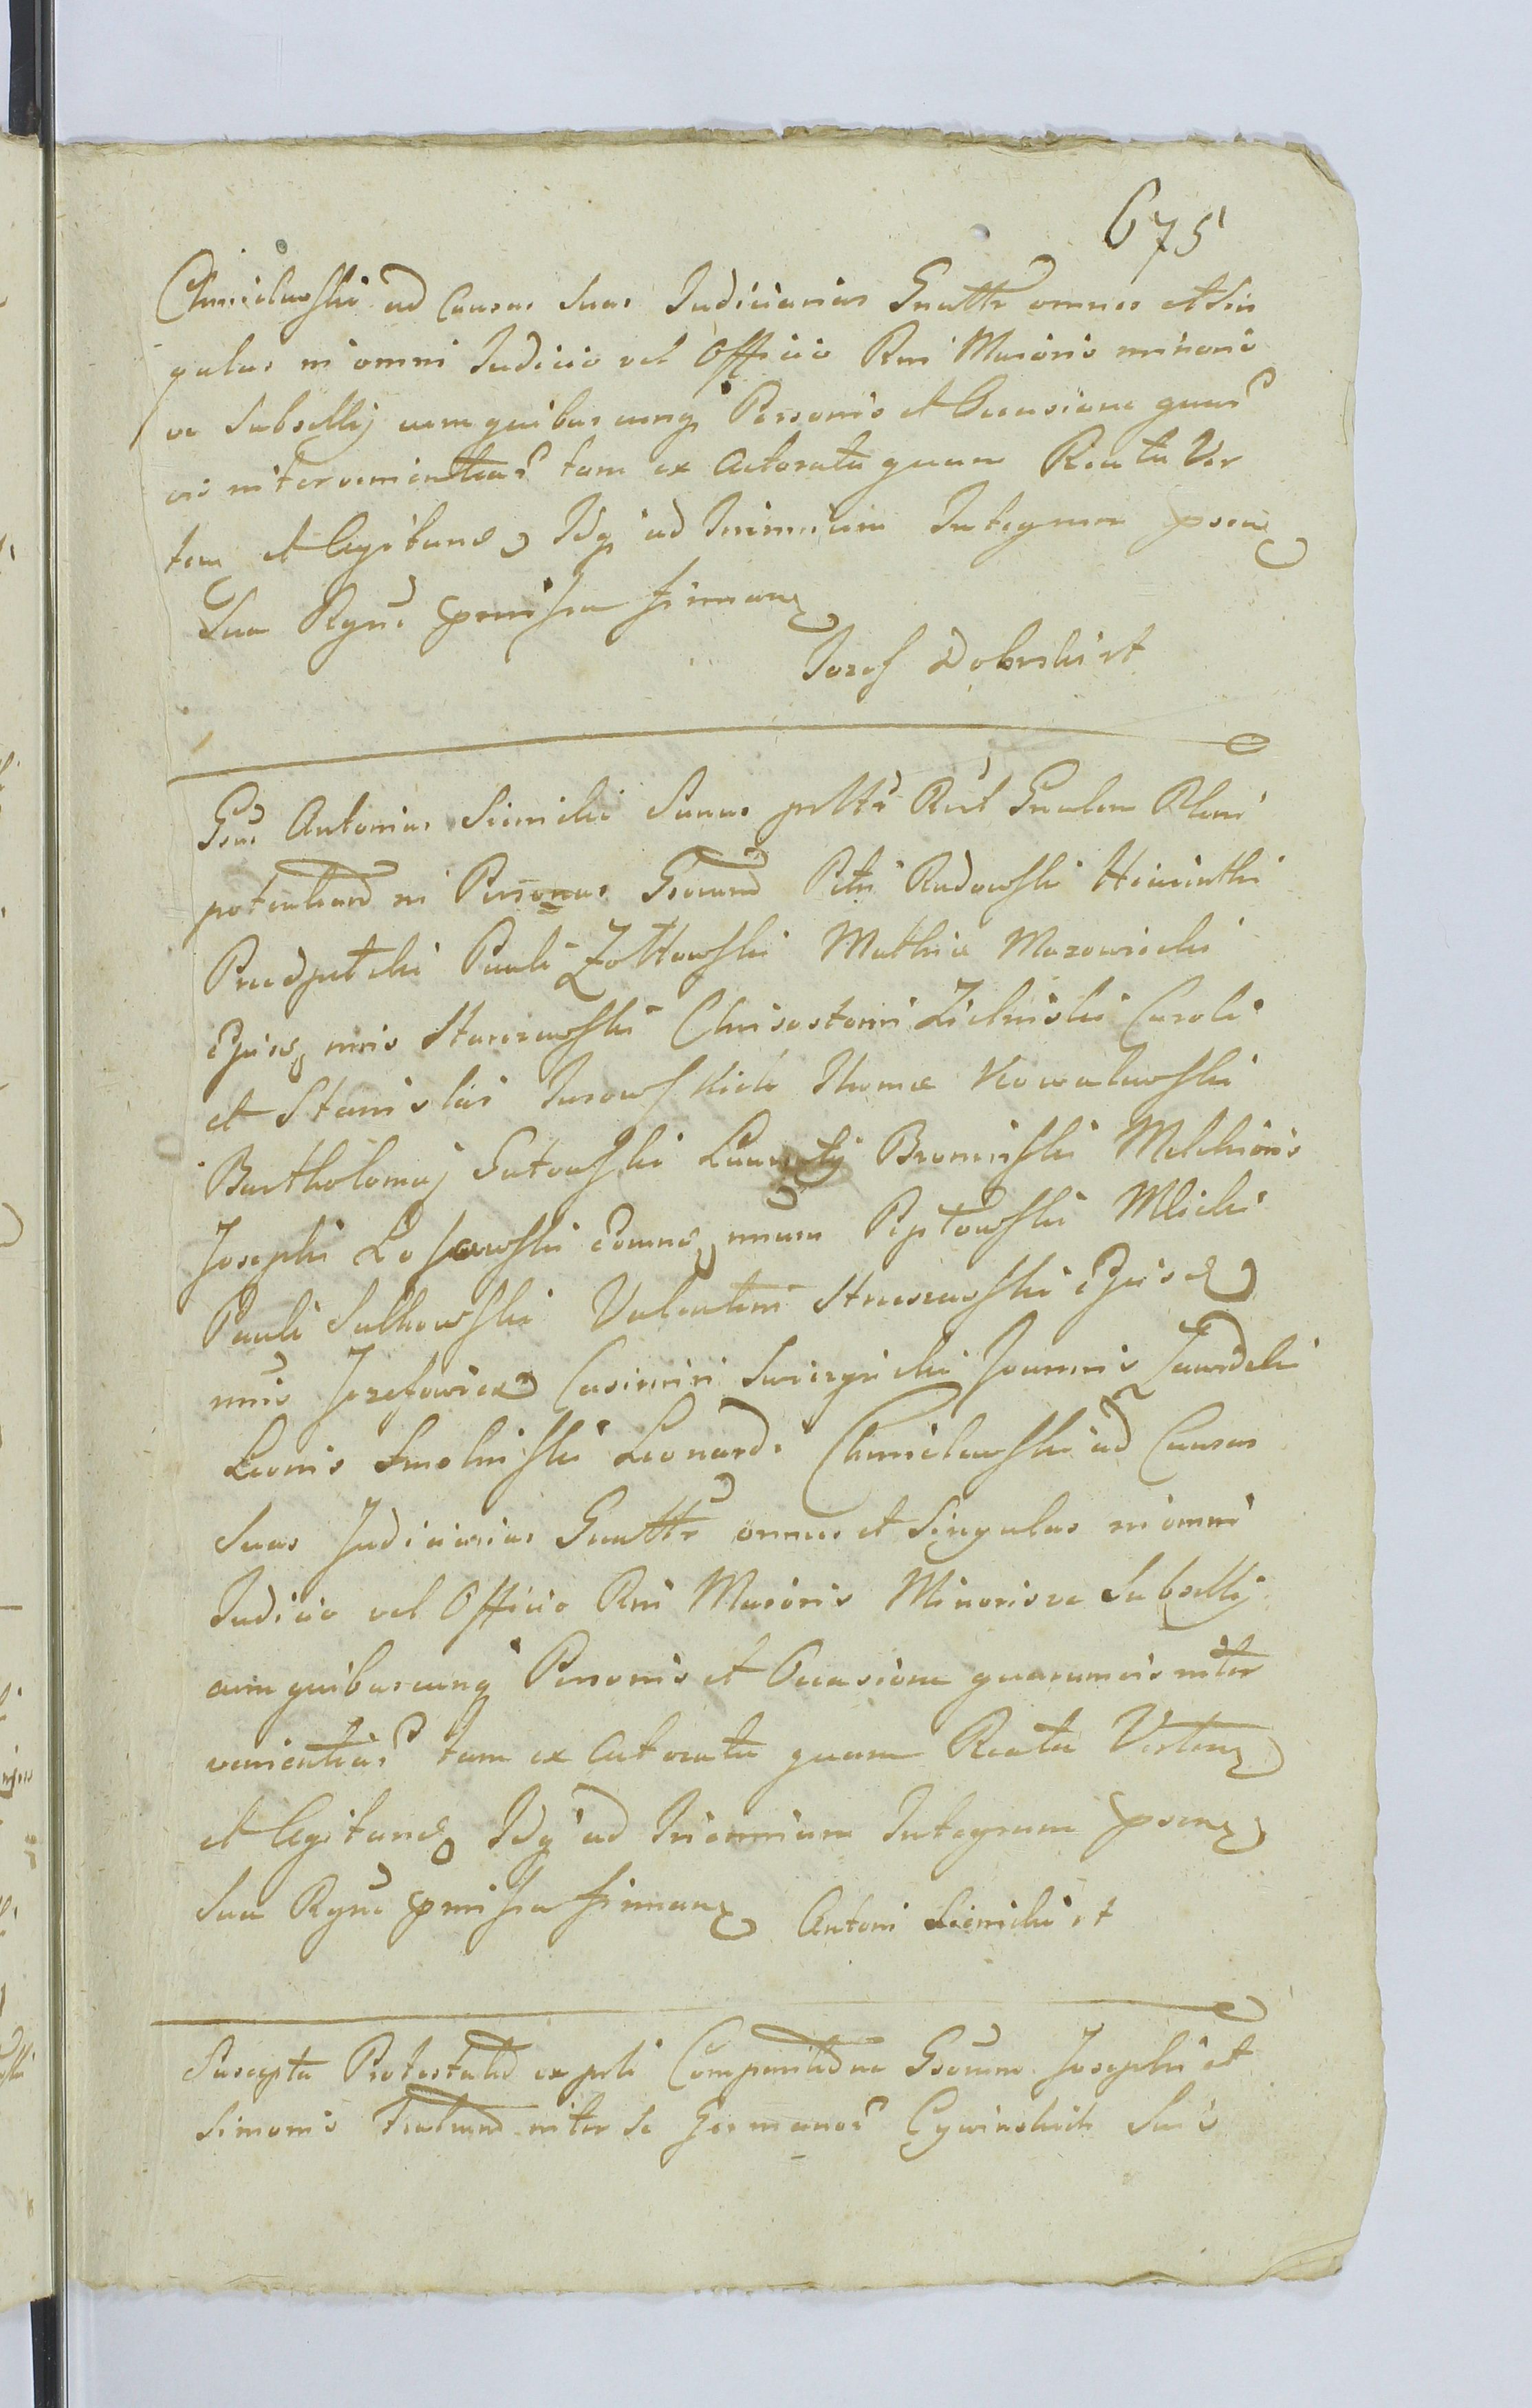 675
Chmielewski ad Causas Suas Judiciarias Gnaltr omnes et Sin
gulas in omni Judicio vel Officio Rni Maioris minoris
ve Subsellij cum quibuscunq Personis et Occasione quar
vis intervenientiar tam ex Actoratu quam Reatu Ver
ten et Agitand Idq ad Triennium Integrum psen
Sua Rgne pmissa firman
Jozef Dobrski rt
Gsus Antonius Sienicki Sanus Rcit Gnalem Pleni
potentiam in Personas Gsorum Petri Radowski Hiacinthi
Przedpełski Pauli Żołtowski Mathiæ Mazowiecki
Ejusd nnis Staniszewski Chrisostomi Zieliński Caroli
et Stanislai Jurowskich Thomæ Kowalewski
Bartholomæj Gutowski Laurentij Bromirski Melchioris
Josephi Łosowski Eorund nnum Peptowski Mlicki
Pauli Sulkowski Valentini Ejusd
nnis Jozefowicz Casimiri Swierzycki Joannis Zawidzki
Leonis Smoliński Leonardi Chmielewski ad Causas
Suas Judiciarias Gnaltr omnes et Singulas in omni
Judicio vel Officio Rni Maioris Minorisve Subsellij
cum quibuscunq Personis et Occasione quarumvis inter
venientiar tam ex Actoratu quam Reatu Verten
et Agitand Idq ad Triennium Integrum psen
Sua Rgne pmissa firman Antoni Sienicki rt
Suscepta Protestatione ex Comparitione Gsorum Josephi et
Simonis Fratrum inter se Germanor Cywinskich Suis